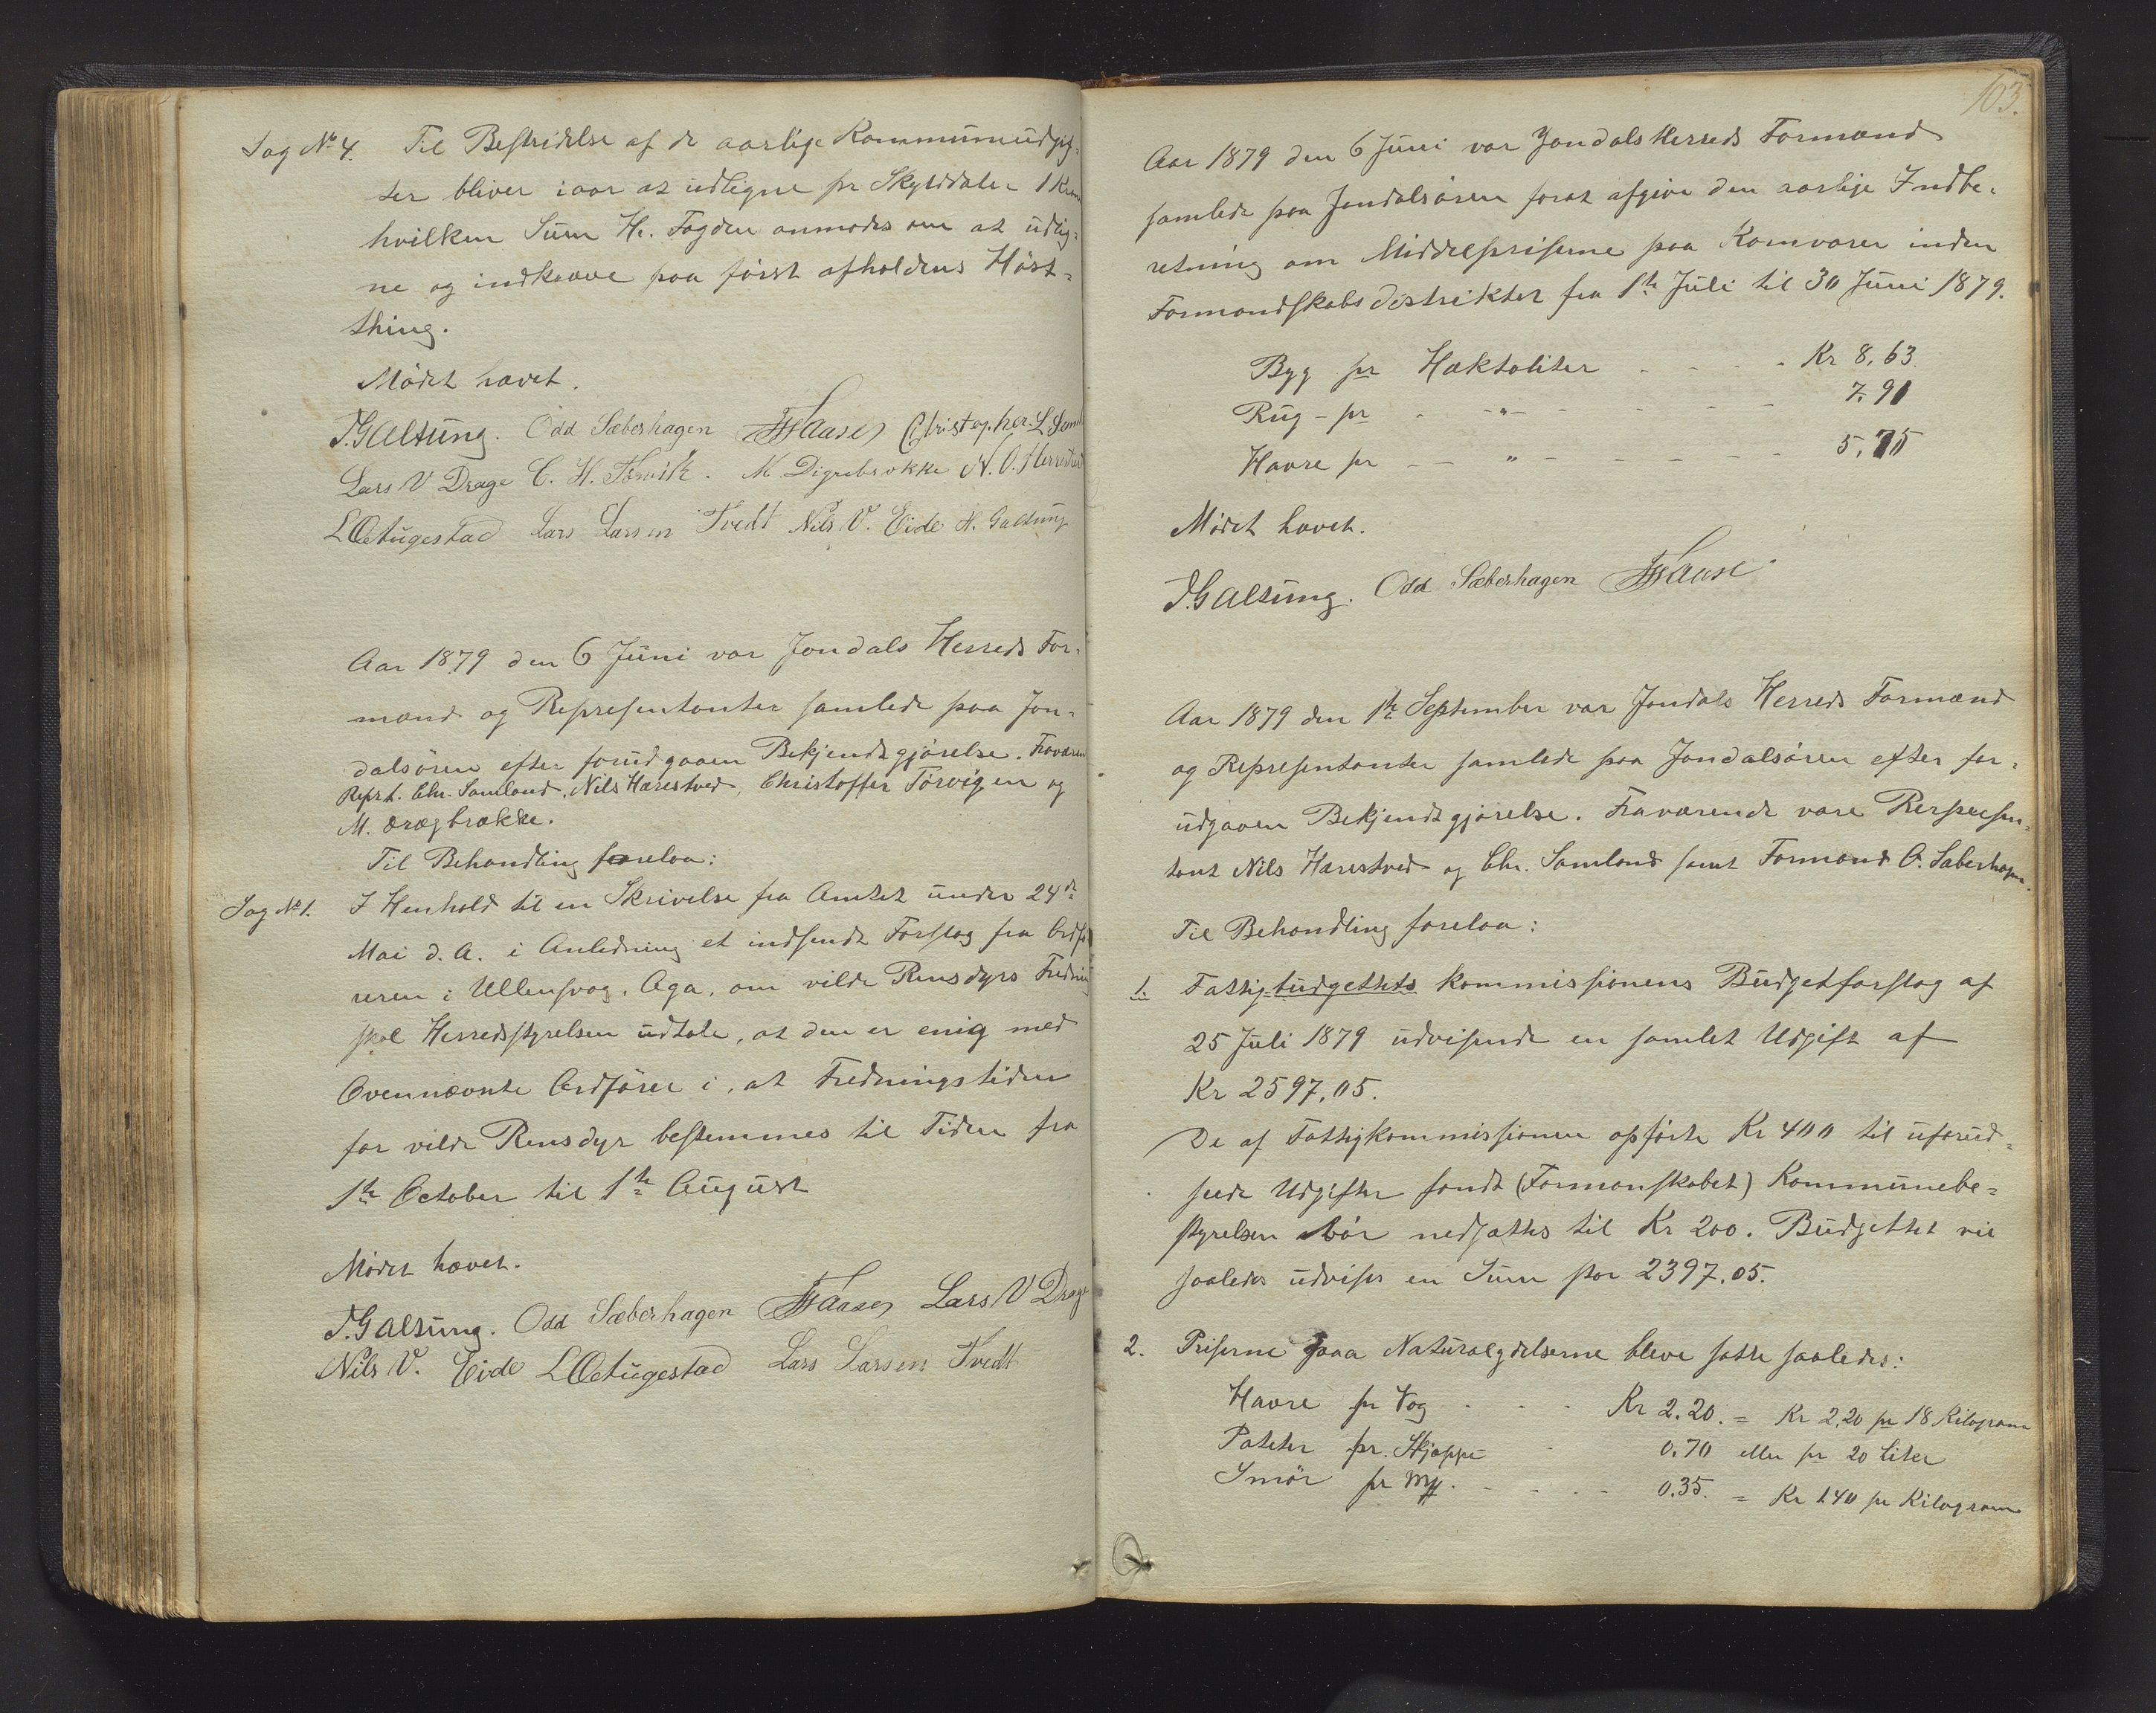 Sag No 4. Til Bestridelse af de aarlige Kommuneudgif-
ter bliver iaar at udligne pr Skylddaler 1 Kron
hvilken Sum Hr. Fogden anmodes om at udlig-
ne og indkræve paa først afholdens Høst-
thing.
Mødet hævet.
J. Galtung. Odd Sæberhagen Christopher L. Saml
Lars V Drage C. H. Torvik. M Digrebrække N. O. Herrestved
L Ætugestad Lars Larsen Tvedt Nils V. Eide H. Galtung
Aar 1879 den 6 Juni var Jondals Herreds For-
mænd og Representanter samlede paa Jon-
dalsøren efter forudgaaen Bekjendtgjørelse. Fraværen
Reprt. Chr. Samland, Nils Hærestved, Christoffer Torvigen og
M. Drægbrække.
Til Behandling forelaa:
Sag No 1. I Henhold til en Skrivelse fra Amtet under 24de
Mai d. A. i Anledning et indsendt Forslag fra Ordfø
reren i Ullensvog, Aga, om vilde Rensdyrs Fredning
skal Herredsstyrelsen udtale, at den er enig med
Ovennævnte Ordfører i, at Fredningstiden
for vilde Rensdyr bestemmes til Tiden fra
1te October til 1te August
Mødet hævet.
J. Galtung. Odd Sæberhagen Lars V Drage
Nils V. Eide L Ætugestad Lars Larsen Tvedt
103.
Aar 1879 den 6 Juni var Jondals Herreds Formænd
samlede paa Jondalsøren forat afgive den aarlige Indbe-
retning om Middelpriserne paa Kornvarer inden
Formandskabsdistrikter fra 1te Juli til 30 Juni 1879.
Byg pr Hæktoliter - - - - Kr 8,63.
Rug - pr - -"- - - - - - 7.91
Havre pr - - " - - - - - - 5,75
Mødet hævet.
J. Galtung. Odd Sæberhagen
Aar 1879 den 1te September var Jondals Herreds Formænd
og Representanter samlede paa Jondalsøren efter for-
udgaaen Bekjendtgjørelse. Fraværende vare Repræsen-
tant Nils Hærestved og Chr. Samland samt Formand O. Sæberhagen.
Til Behandling forelaa:
1. Fattigbudgettets kommissionens Budgetforslag af
25 Juli 1879 udvisende en samlet Udgift af
Kr 2597,05.
De af Fattigkommissionen opførte Kr 400 til uforud-
seede Udgifter fandt (Formanskabet) Kommunebe-
styrelsen bør nedsættes til Kr 200. Budgettet vil
saaledes udvise en Sum stor 2397,05.
2. Priserne paa Naturalydelserne bleve satte saaledes:
Havre pr Vog - - - Kr 2.20. = Kr 2,20 pr 18 Kilogram
Poteter pr. Skjæppe - 0.70 eller pr 20 Liter
Smør pr Mk. - - - - 0.35. = Kr 1.40 pr Kilogram